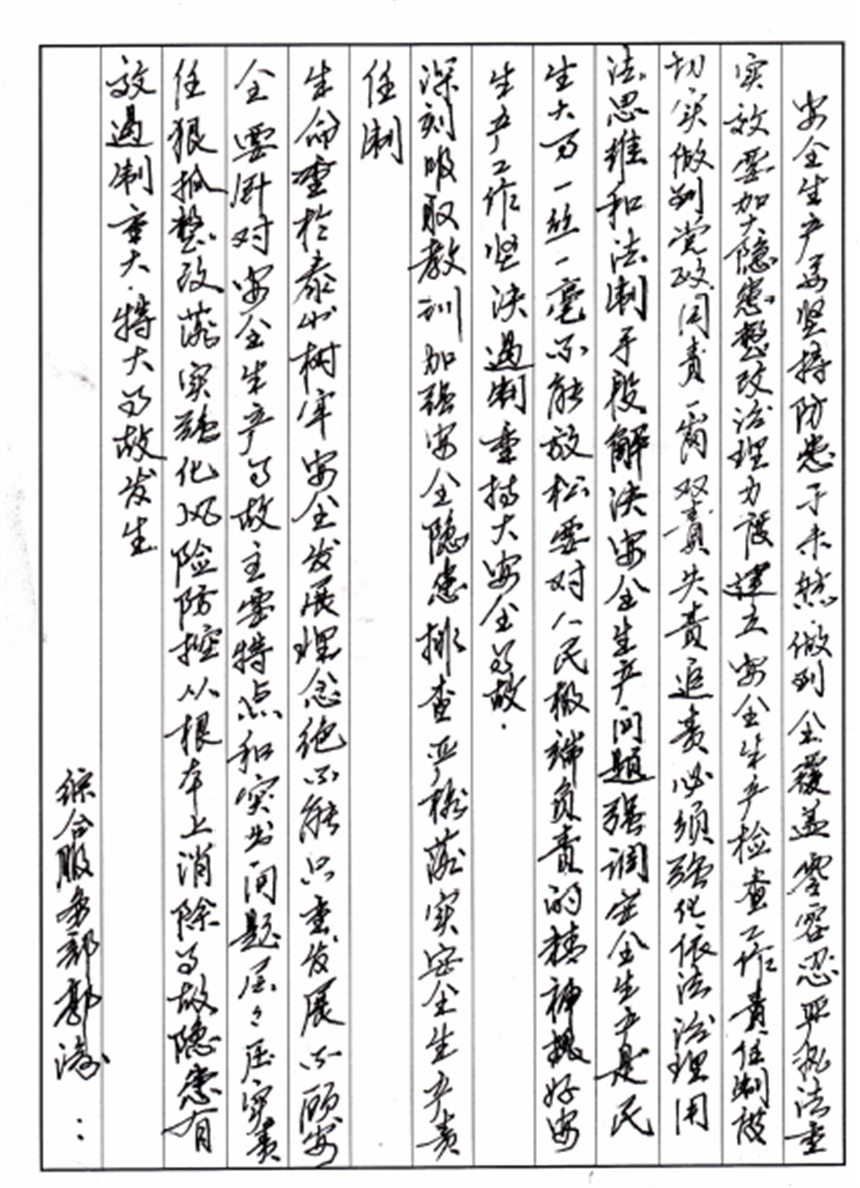 安全生产要坚持防患于未然.做到全覆盖零容忍严执法重
实效要加大隐患整改治理力度建立安全生产检查工作责任制度
切实做到党政同责一岗双责失责追责必须强化依法治理用
法思维和法制手段解决安全生产问题强调安全生产是民
生大事一丝一毫不能放松要对人民极端负责的精神抓好安
生产工作坚决遏制重特大安全事故.
深刻吸取教训加强安全隐患排查严格落实安全生产责
任制
生命重於泰山树牢安全发展理念绝不能只重发展不顾安
全要针对安全生产事故主要特点和突出问题层々压实责
任狠抓整改落实强化风险防控从根本上消除事故隐患有
效遏制重大.特大事故发生
综合服务部郭涛: